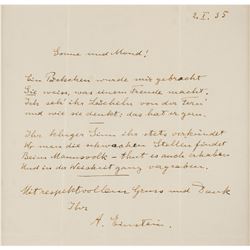 2.V.35
Sonne und Mond!
Ein Bildchen wurde mir gebracht
Sie weiss, was einem Freude macht.
Ich seh' ihr Lächeln von der
und wie sie denkt: das hat er gern.
Ihr kluger Sinn ihr stets verkündet
Wo man die schwachen Stellen findet
Beim Mannsvolk - thut es auch erhaben
Und in der gang vergraben.
Mit respektvollem Gruss und Dank
Ihr
A. Einstein.